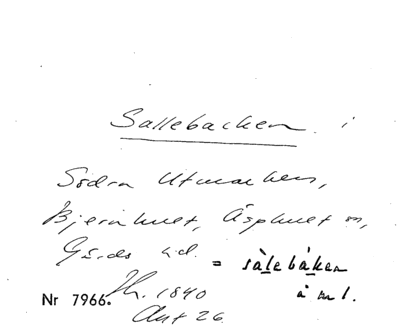 Sallebacken i
Södra Utmarken,
Bjernhult, Äsphult sn,
Gärds hd. = sàlebáken
Nr 7966. Jh. 1840 å ml.
Akt 26